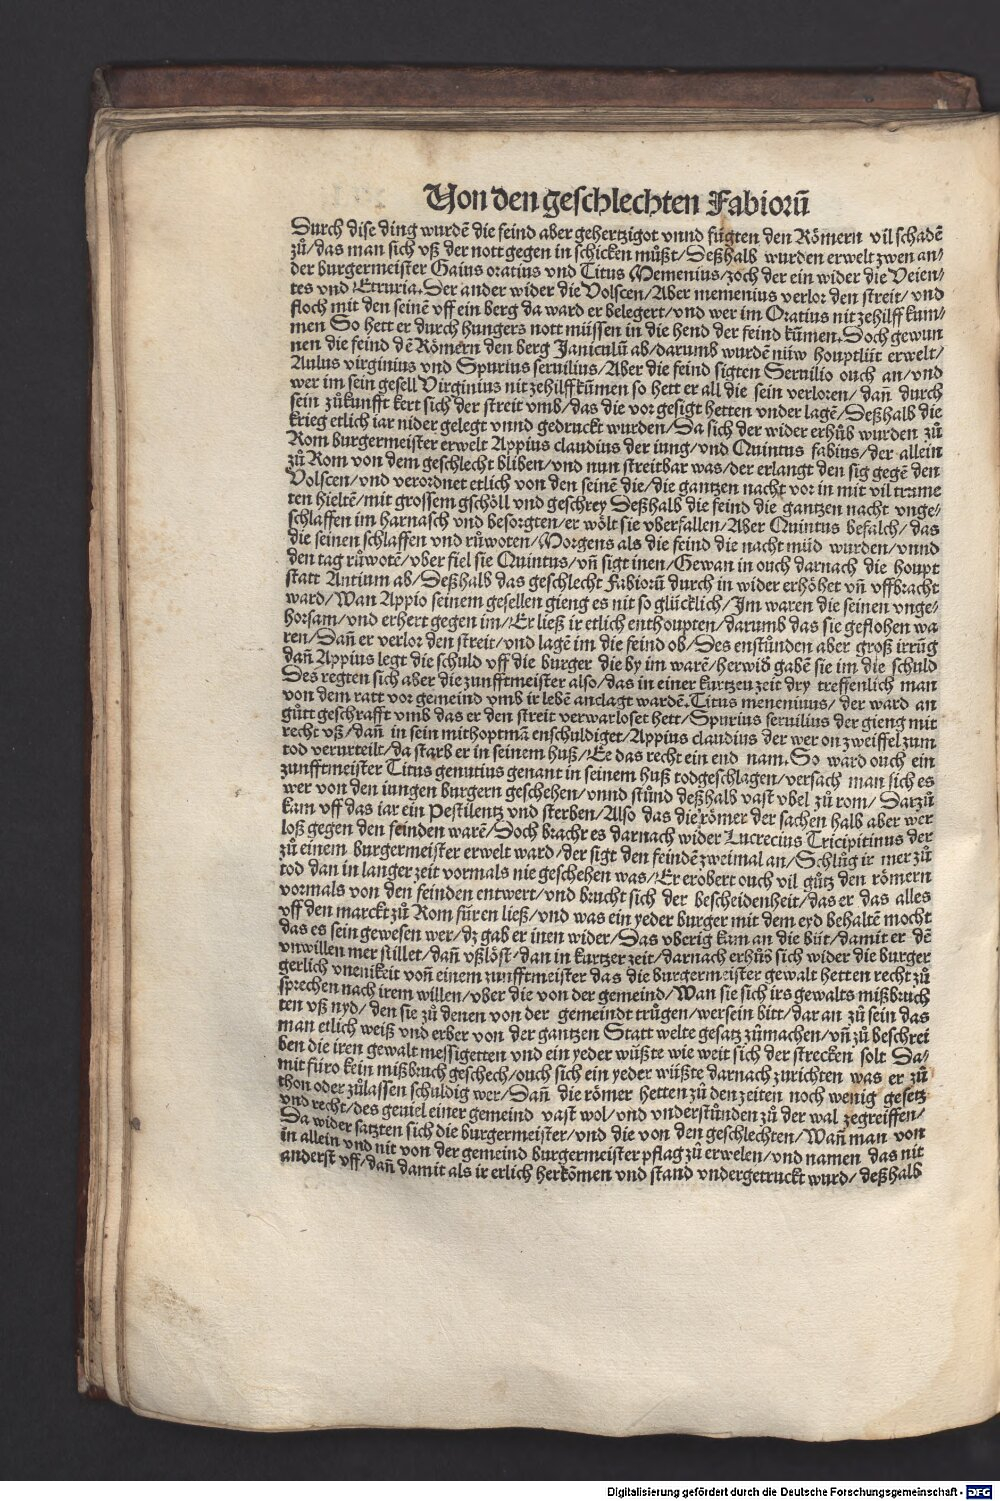 Von den geschlechten Fabiorū
Durch dise ding wurdē die feind aber gehertzigot vnnd fügten den Römern vil schadē
zů/das man sich vß der nott gegen in schicken můßt/Deßhalb wurden erwelt zwen an/
der burgermeister Gaius oratius vnd Titus Memenius/zoch der ein wider die Veien/
tes vnd Etruria. Der ander wider die Volscen/Aber memenius verlor den streit/vnd
floch mit den seinē vff ein berg da ward er belegert/vnd wer im Oratius nit zehilff kum/
men So hett er durch hungers nott müssen in die hend der feind kūmen. Doch gewun
nen die feind dē Römern den berg Janiculū ab/darumb wurdē nüw houptlüt erwelt/
Aulus virginius vnd Spurius seruilius/Aber die feind sigten Seruilio ouch an/vnd
wer im sein gesell Virginius nit zehilff kūmen so hett er all die sein verloren/dañ durch
sein zůkunfft kert sich der streit vmb/das die vor gesigt hetten vnder lagē/Deßhalb die
krieg etlich iar nider gelegt vnnd gedruckt wurden/Da sich der wider erhůb wurden zů
Rom burgermeister erwelt Appius claudius der iung/vnd Quintus fabius/der allein
zů Rom von dem geschlecht bliben/vnd nun streitbar was/der erlangt den sig gegē den
Volscen/vnd verordnet etlich von den seinē die/die gantzen nacht vor in mit vil trume
ten hieltē/mit grossem gschöll vnd geschrey Deßhalb die feind die gantzen nacht vnge/
schlaffen im harnasch vnd besorgten/er wölt sie vberfallen/Aber Quintus befalch/das
die seinen schlaffen vnd růwoten/Morgens als die feind die nacht müd wurden/vnnd
den tag růwotē/vber fiel sie Quintus/vñ sigt inen/Gewan in ouch darnach die houpt
statt Antium ab/Deßhalb das geschlecht Fabiorū durch in wider erhöhet vñ vffbracht
ward/Wan Appio seinem gesellen gieng es nit so glücklich/Im waren die seinen vnge/
horsam/vnd erhert gegen im/Er ließ ir etlich enthoupten/darumb das sie geflohen wa
ren/Dañ er verlor den streit/vnd lagē im die feind ob/Des enstůnden aber groß irrūg
dañ Appius legt die schuld vff die burger die by im warē/herwid gabē sie im die schuld
Des regten sich aber die zunfftmeister also/das in einer kurtzen zeit dry treffenlich man
von dem ratt vor gemeind vmb ir lebē anclagt wardē. Titus meneniuus/der ward an
gůtt geschrafft vmb das er den streit verwarloset hett/Spurius seruilius der gieng mit
recht vß/dañ in sein mithoptmā enschuldiget/Appius claudius der wer on zweiffel zum
tod verurteilt/da starb er in seinem huß/Ee das recht ein end nam. So ward ouch ein
zunfftmeister Titus genutius genant in seinem huß todgeschlagen/versach man sich es
wer von den iungen burgern geschehen/vnnd stůnd deßhalb vast vbel zů rom/Darzů
kam vff das iar ein Pestilentz vnd sterben/Also das die römer der sachen halb aber wer
loß gegen den feinden warē/Doch brachr es darnach wider Lucrecius Tricipitinus der
zů einem burgermeister erwelt ward/der sigt den feindē zweimal an/Schlůg ir mer zů
tod dan in langer zeit vormals nie geschehen was/Er erobert ouch vil gůtz den römern
vormals von den feinden entwert/vnd brucht sich der bescheidenheit/das er das alles
vff den marckt zů Rom füren ließ/vnd was ein yeder burger mit dem eyd behaltē mocht
das es sein gewesen wer/dz gab er inen wider/Das vberig kam an die büt/damit er dē
vnwillen mer stillet/dañ vßlöst/dan in kurtzer zeit/darnach erhůb sich wider die burger
gerlich vnenikeit voñ einem zunfftmeister das die burgermeister gewalt hetten recht zů
sprechen nach irem willen/vber die von der gemeind/Wan sie sich irs gewalts mißbruch
ten vß nyd/den sie zů denen von der gemeindt trůgen/wer sein bitt/dar an zů sein das
man etlich weiß vnd erber von der gantzen Statt welte gesatz zůmachen/vñ zů beschrei
ben die iren gewalt messigetten vnd ein yeder wüßte wie weit sich der strecken solt Da/
mit füro kein mißbruch geschech/ouch sich ein yeder wüßte darnach zurichten was er zů
thon oder zůlassen schuldig wer/Dañ die römer hetten zů den zeiten noch wenig gesetz
vnd recht/des geuiel einer gemeind vast wol/vnd vnderstůnden zů der wal zegreiffen/
Da wider satzten sich die burgermeister/vnd die von den geschlechten/Wañ man von
in allein vnd nit von der gemeind burgermeister pflag zů erwelen/vnd namen das nit
anderst vff/dañ damit als ir erlich herkōmen vnd stand vndergetruckt wurd/deßhalb
Digitalisierung gefördert durch die Deutsche Forschungsgemeinschaft - DFG